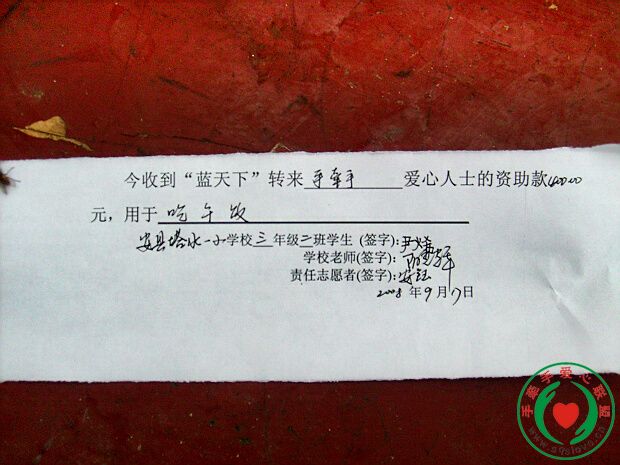 今收到“蓝天下”转来 手牵手 爱心人士的资助款400.00
元，用于 吃午饭
安县塔水一小学校三年级二班学生 (签字):
学校老师(签字):
责任志愿者(签字):
2008年9月17日
手牵手爱心联盟